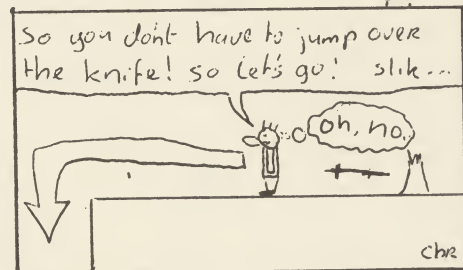 So you don't have to jump over
the knife! so let's go! slik...
oh, no.
Chr